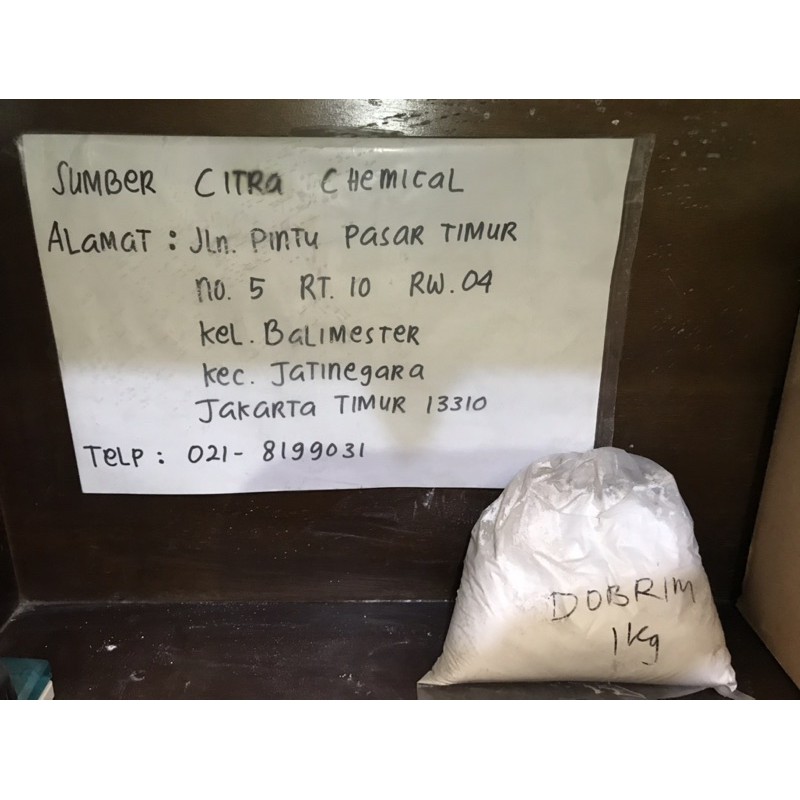 SUMBER CITRA CHEMICAL
ALAMAT : Jln. PINTU PASAR TIMUR
NO. 5 RT. 10 RW. 04
KEL. BALIMESTER
KEC. JATINEGARA
JAKARTA TIMUR 13310
TELP : 021- 8199031
DOBRIM
1 Kg